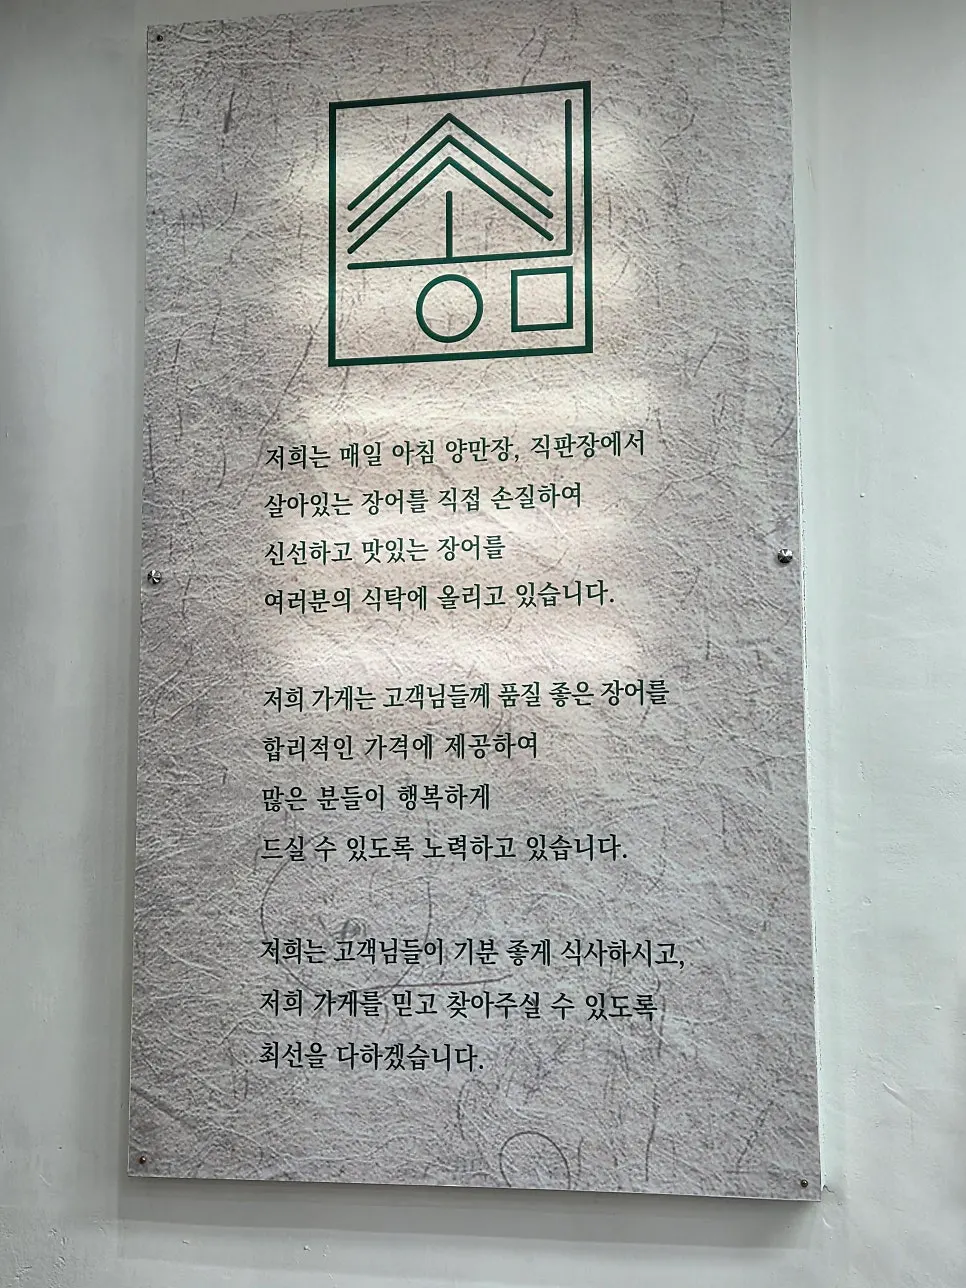 저희는 매일 아침 양만장, 직판장에서
살아있는 장어를 직접 손질하여
신선하고 맛있는 장어를
여러분의 식탁에 올리고 있습니다.
저희 가게는 고객님들께 품질 좋은 장어를
합리적인 가격에 제공하여
많은 분들이 행복하게
드실 수 있도록 노력하고 있습니다.
저희는 고객님들이 기분 좋게 식사하시고,
저희 가게를 믿고 찾아주실 수 있도록
최선을 다하겠습니다.